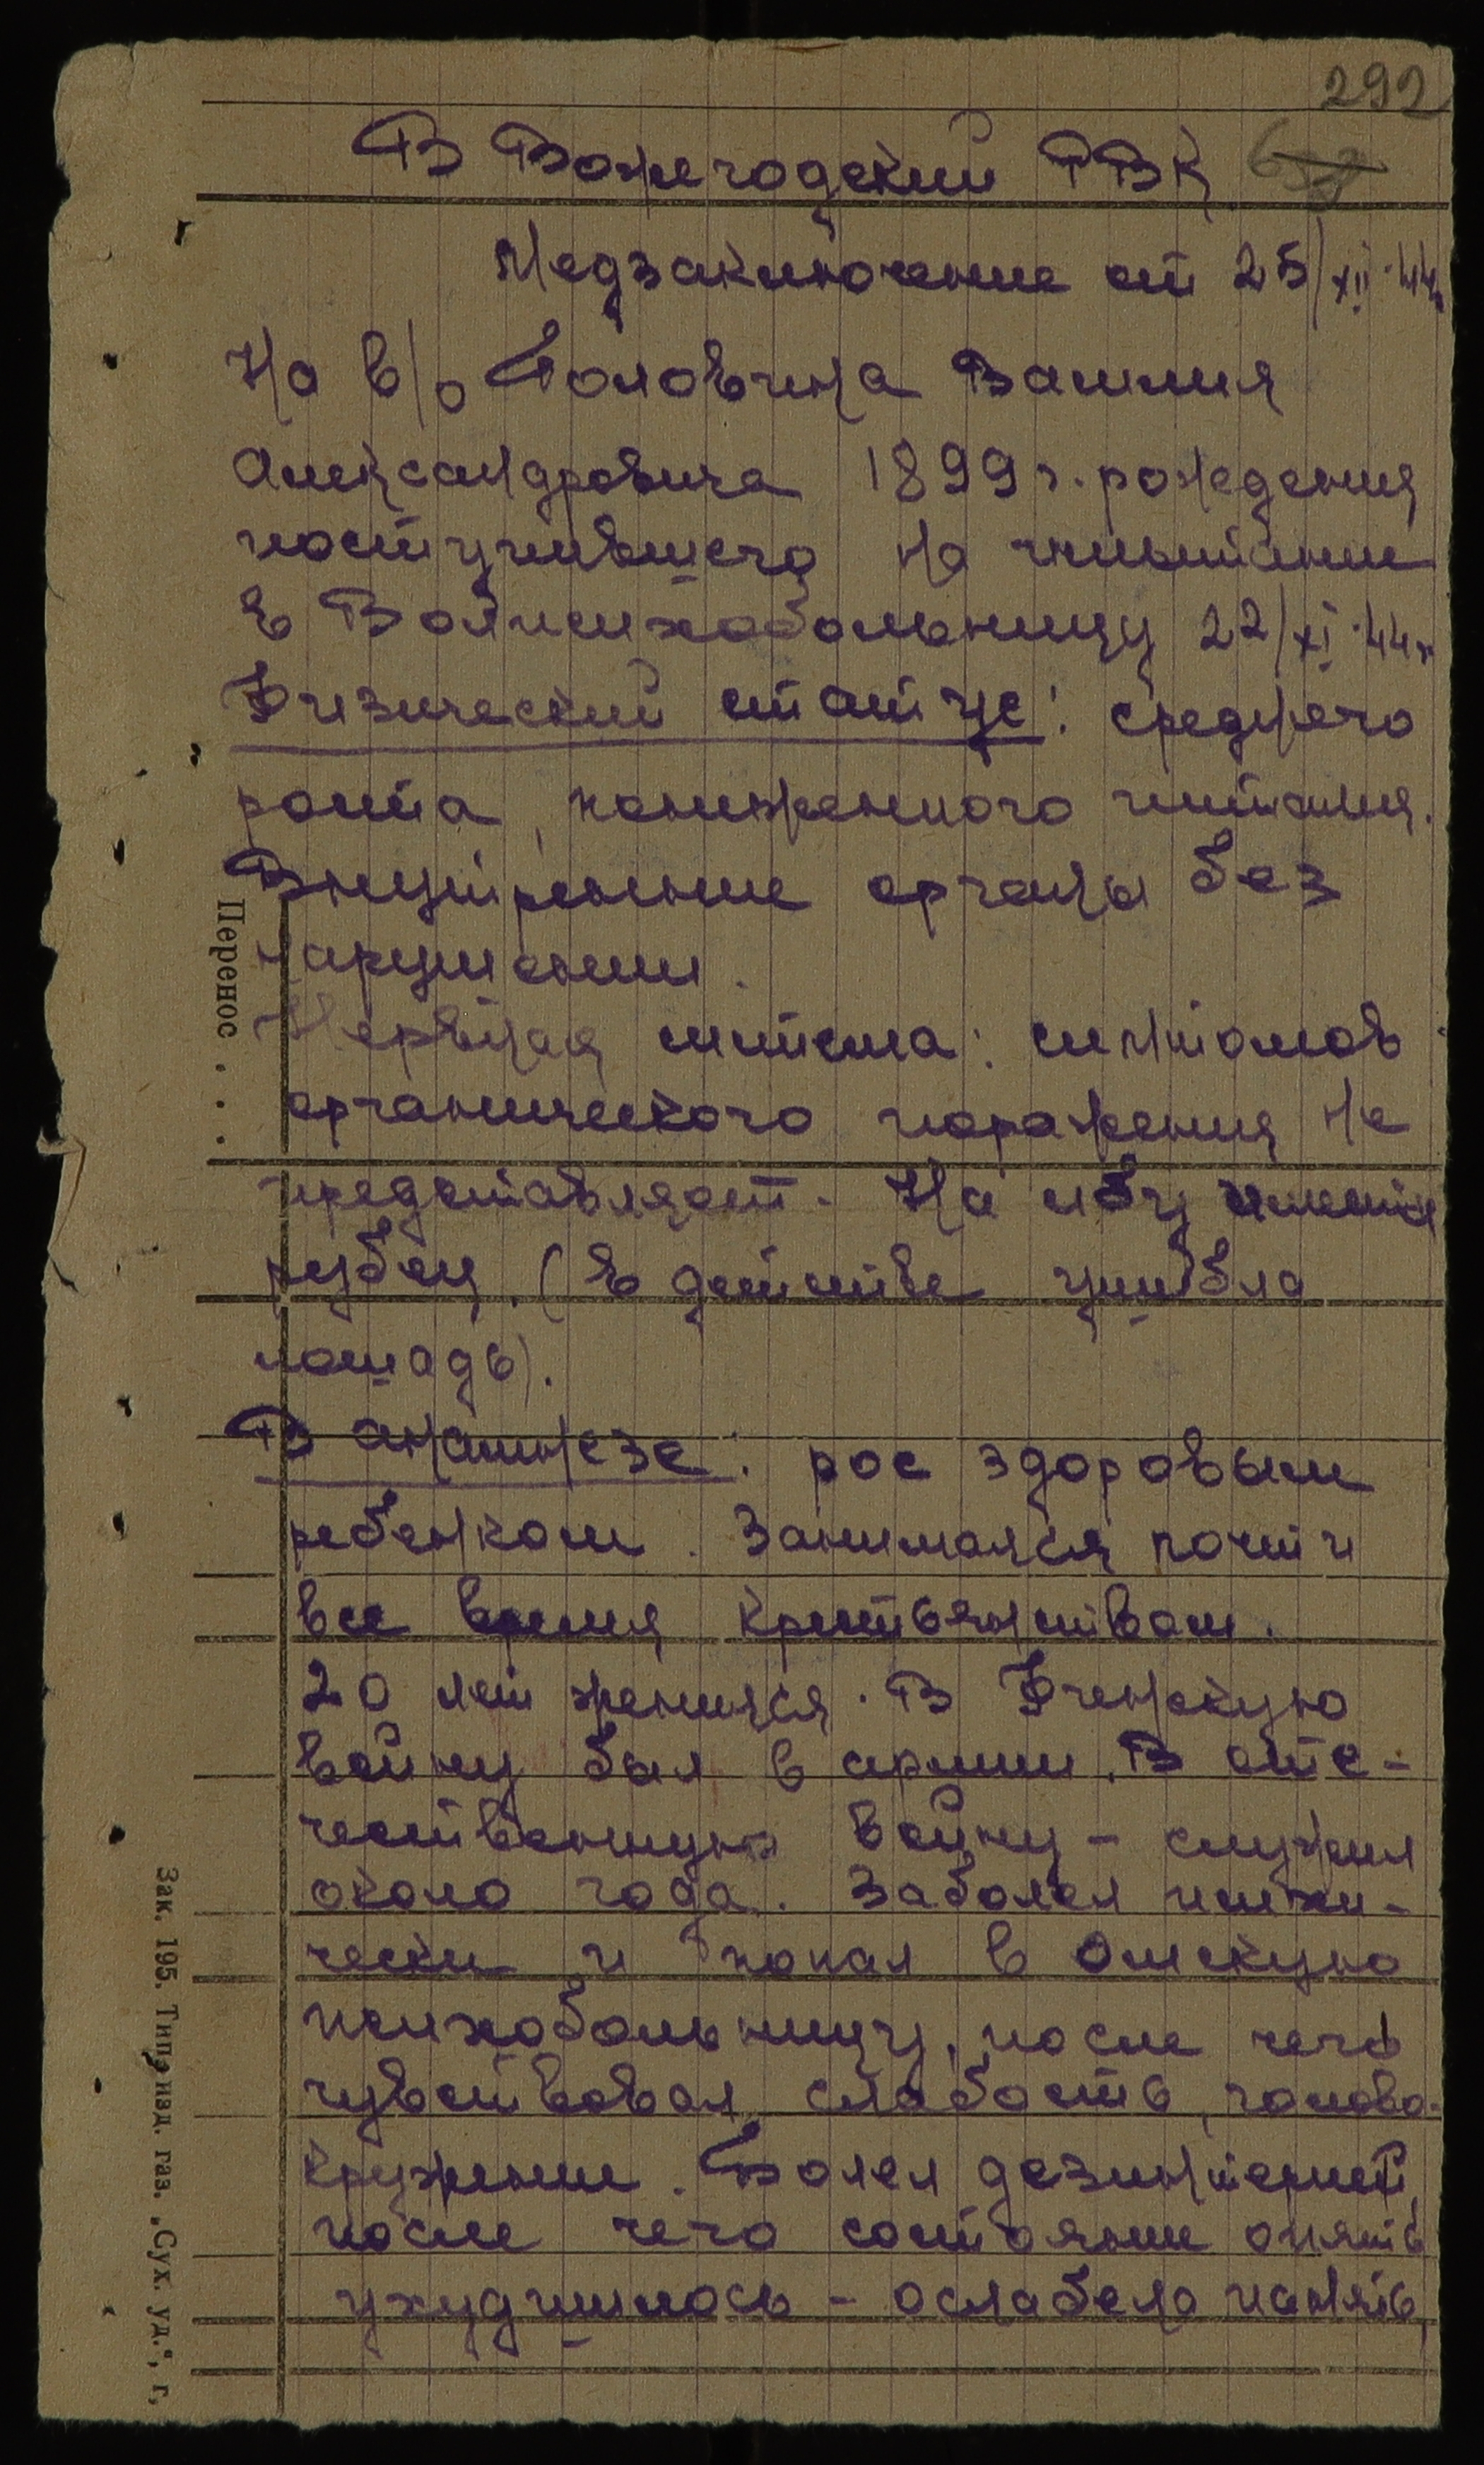 292
В Вожегодский РВК
Медзаключение от 25/XII-44г.
На в/о Головина Василия
Александровича 1899 г. рождения
поступившего на испытание
в Волпсихобольницу 22/XI-44г
Физический статус: среднего
роста, пониженного питания.
Внутренние органы без
нарушений.
Нервная система: симптомов
органического поражения не
представляет. На лбу имеется
рубец. (В детстве ушибла
лошадь).
В анамнезе: рос здоровым
ребенком. Занимался почти
все время крестьянством.
20 лет женился. В Финскую
войну был в армии. В оте-
чественную войну - служил
около года. Заболел психи-
чески и попал в Омскую
психобольницу, после чего
чувствовал слабость, голово-
кружение. Болел дезинтерией,
после чего состояние опять
ухудшилось - ослабела память,
Перенос . . .
Зак. 195. Тип. изд. газ. „Сух. уд.“, г.